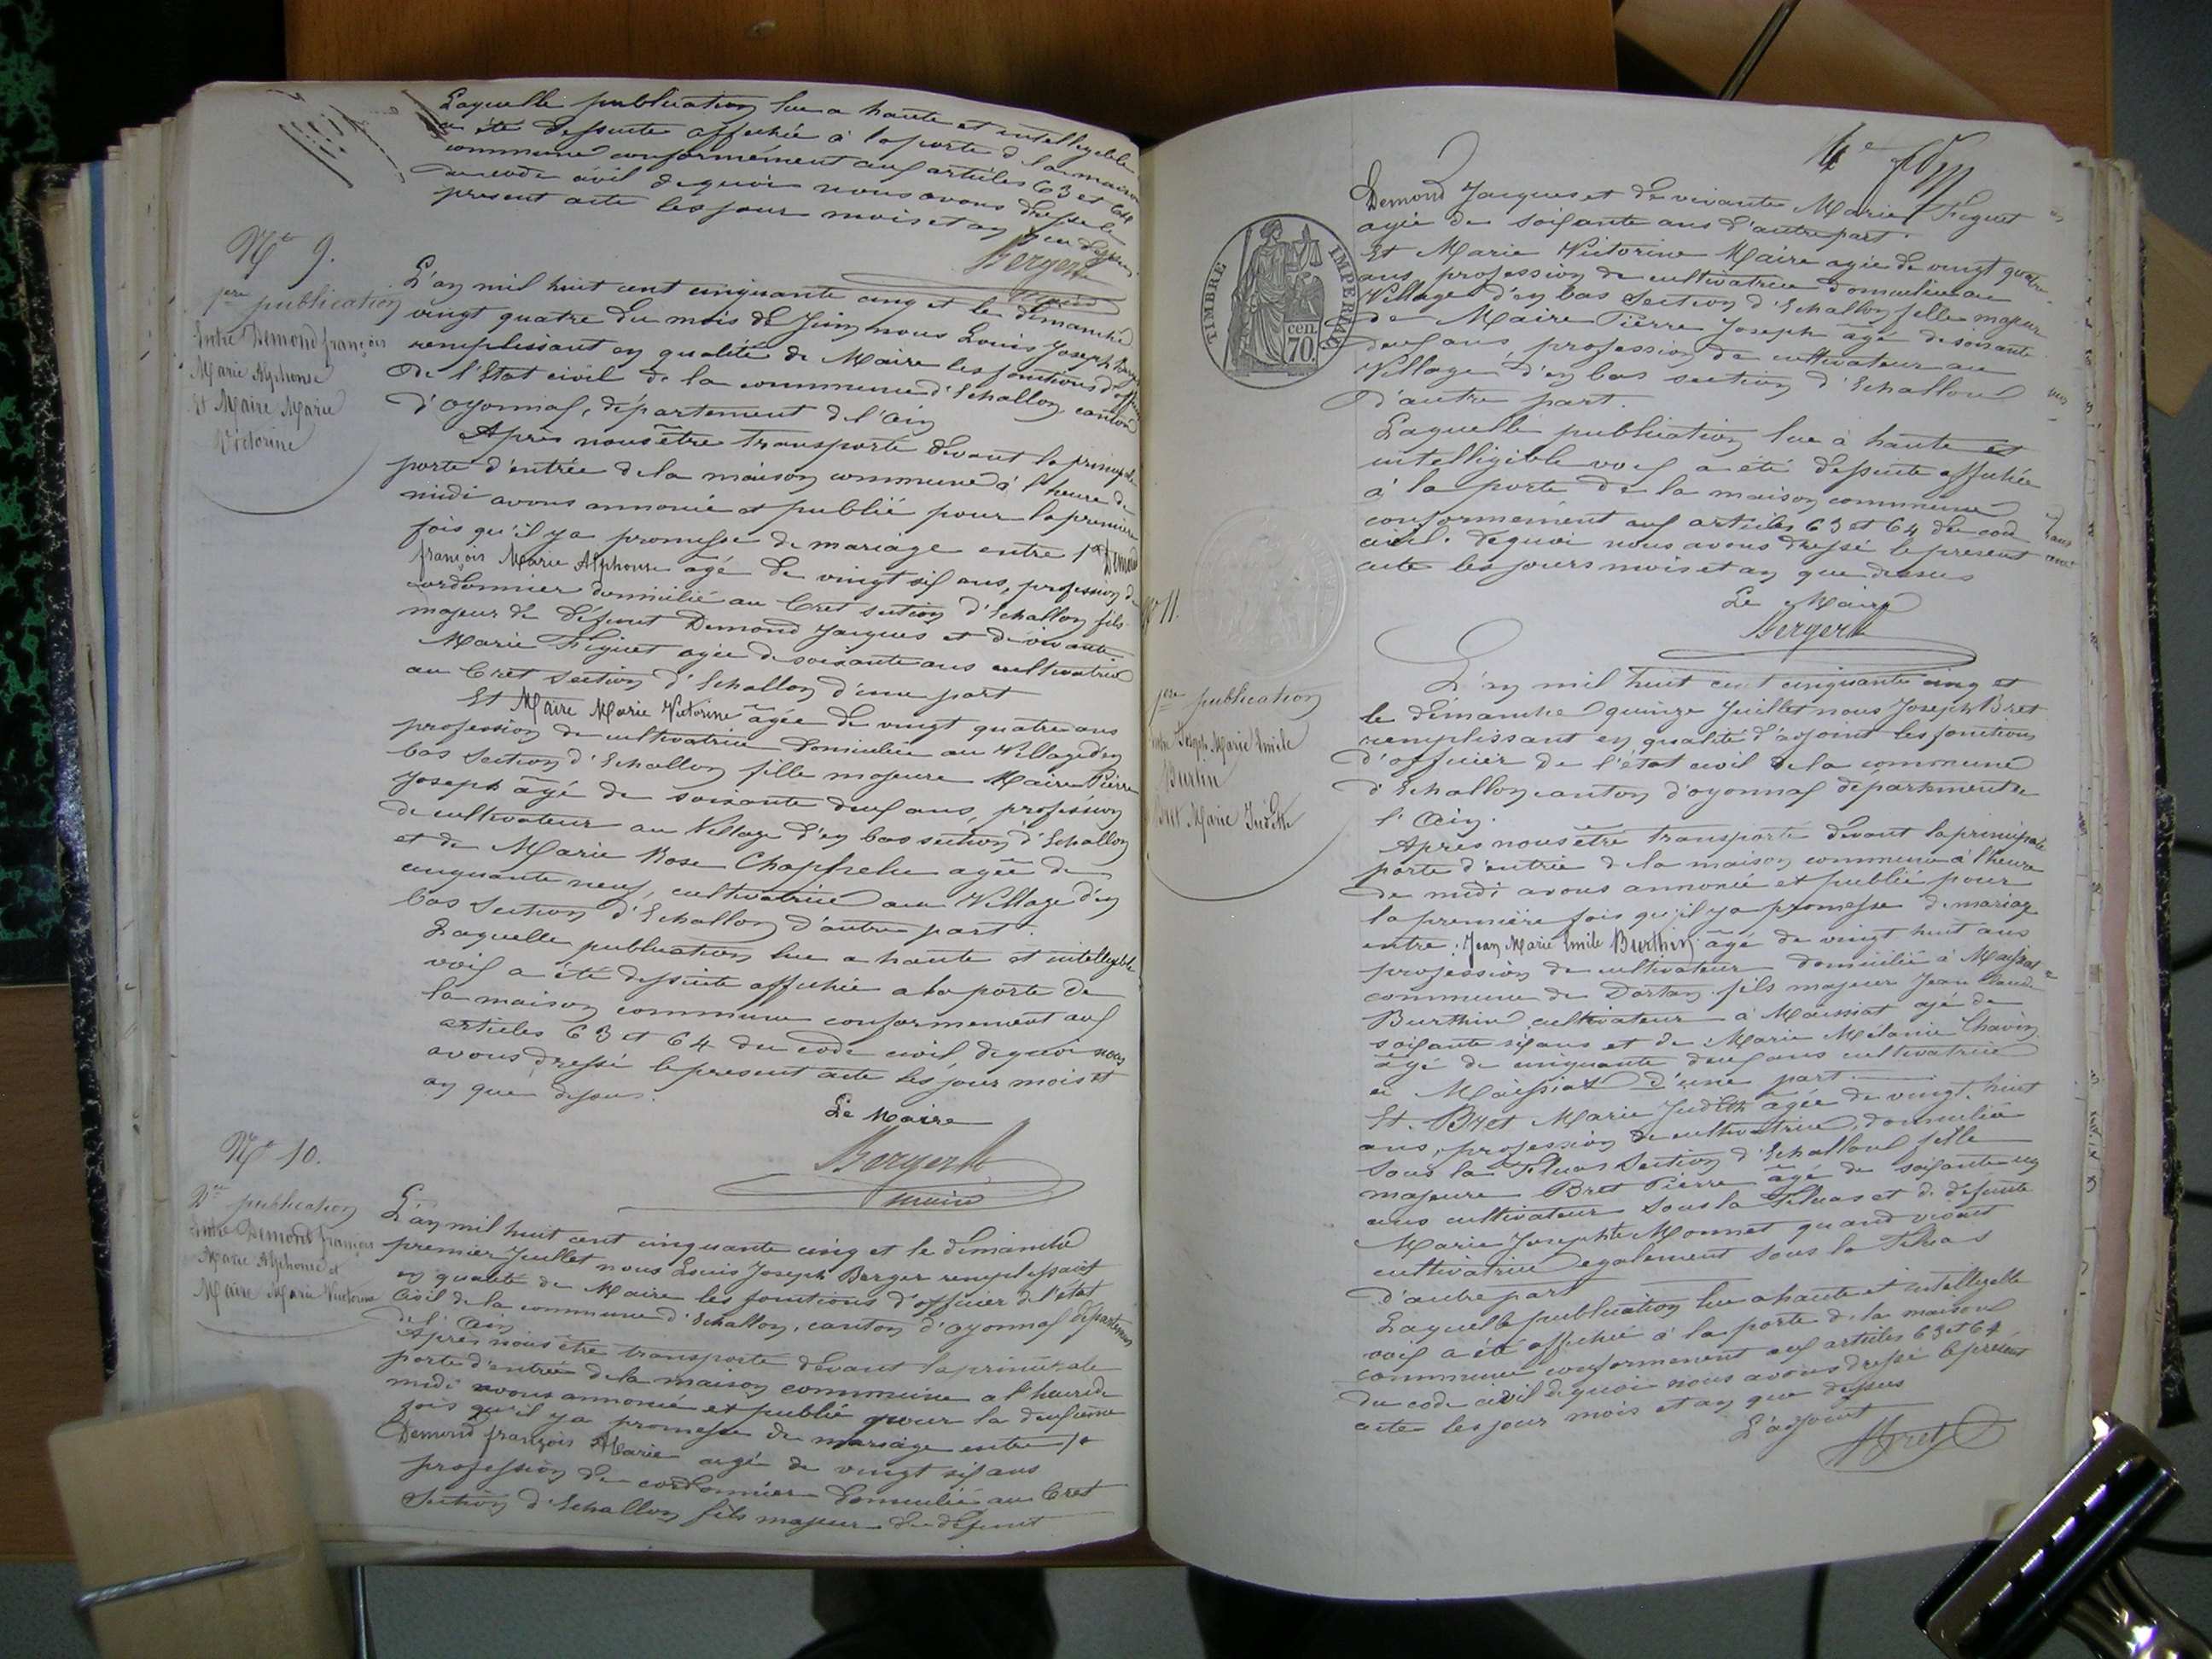 Laquelle publication lue a haute et intelligible
a été dessuite affichée à la porte d la maison
commune conformément aux articles 63 et 64
du code civil dequoi nous avons dressé le
présent acte les jour mois et an que dessus.
Berger
maire
N° 9.
1ere publication
Entre Demond françois
Marie Alphonse
Et Maire Marie
Victorine
L'an mil huit cent cinquante cinq et le dimanche
vingt quatre du mois de Juin nous Louis Joseph
remplissant en qualité de Maire les fonctions
de l'Etat civil de la commune d'Echallon, canton
d'oyonnax, département de l'ain
Après nous être transporté devant la principale
porte d'entrée de la maison commune à l'heure de
midi avons annoncé et publié pour la première
fois qu'il ya promesse de mariage entre Demond
françois Marie Alphonse âgé de vingt six ans, profession de
cordonnier domicilié au Cret section d'Echallon fils
majeur de défunt Demond Jacques et de vivante
Marie Figuet agée de soixante ans cultivatrice
au Cret section d'Echallon d'une part
Et Maire Marie Victorine âgée de vingt quatre ans
profession de cultivatrice domiciliée au Village d'en
bas Section d'Echallon fille majeure Maire Pierre
Joseph âgé de soixante deux ans, profession
de cultivateur au Village d'en bas section d'Echallon
et de Marie Rose Chappelu agée de
cinquante neuf, cultivatrice au Village d'en
bas Section d'Echallon d'autre part.
Laquelle publication lue a haute et intelligible
voix a été dessuite affichée a la porte de
la maison commune conformement aux
articles 63 et 64 du code civil, dequoi nous
avons dressé le present acte les jour mois et
an que dessus.
Le Maire
Berger
maire
N° 10.
2me publication
Entre Demond françois
Marie Alphonse et
Maire Marie Victorine
L'an mil huit cent cinquante cinq et le dimanche
premier Juillet nous Louis Joseph Berger remplissant
en qualité de Maire les fonctions d'officier de l'état
Civil de la commune d'Echallon, canton d'oyonnax département
de l'Ain
Après nous être transporté devant la principale
porte d'entrée de la maison commune a l'heure de
midi avons annoncé et publié pour la deuxième
fois qu'il ya promesse de mariage entre
Demond françois Marie agé de vingt six ans
profession de cordonnier domicilié au Cret
section d'Echallon fils majeur de défunt
4e
Demond Jacques et de vivante Marie Figuet
agée de soixante ans d'autre part.
Et Marie Victorine Maire agée de vingt quatre
ans, profession de cultivatrice domiciliée au
Village d'en bas Section d'Echallon fille majeure
de Maire Pierre Joseph âgé de soixante
deux ans profession de cultivateur au
Village d'en bas section d'Echallon
d'autre part.
Laquelle publication lue à haute et
intelligible voix a été dessuite affichée
à la porte de la maison commune
conformément aux articles 63 et 64 du code
civil. dequoi nous avons dressé le présent
acte les jours mois et an que dessus
Le Maire
Berger
TIMBRE IMPERIAL
70 cen.
N° 11.
1ere publication
entre Joseph Marie Emile
Burtin
Bret Marie Judith
L'an mil huit cent cinquante cinq et
le dimanche quinze Juillet nous Joseph Bret
remplissant en qualité d'adjoint les fonctions
d'officier de l'état civil de la commune
d'Echallon canton d'oyonnax département de
l'Ain.
Après nous être transporté devant la principale
porte d'entrée de la maison commune à l'heure
de midi avons annoncé et publié pour
la première fois qu'il ya promesse de mariage
entre Jean Marie Emile Burthin âgé de vingt huit ans
profession de cultivateur domicilié à Maissiat
commune de Dortan fils majeur Jean Claude
Burthin cultivateur à Maissiat agé de
soixante six ans et de Marie Mélanie Chavin
agé de cinquante deux ans cultivatrice
a Maissiat d'une part
Et. Bret Marie Judith agée de vingt huit
ans, profession de cultivatrice, domiciliée
sous la Section d'Echallon fille
majeure Bret Pierre âgé de soixante un
ans cultivateur sous la et de défunte
Marie Josephte Monnet quand vivait
cultivatrice également sous la
d'autre part
Laquelle publication lue a haute et intelligible
voix a été affichée à la porte de la maison
commune conformement aux articles 63 et 64
du code civil dequoi nous avons dressé le présent
acte les jour mois et an que dessus
L'adjoint
Bret